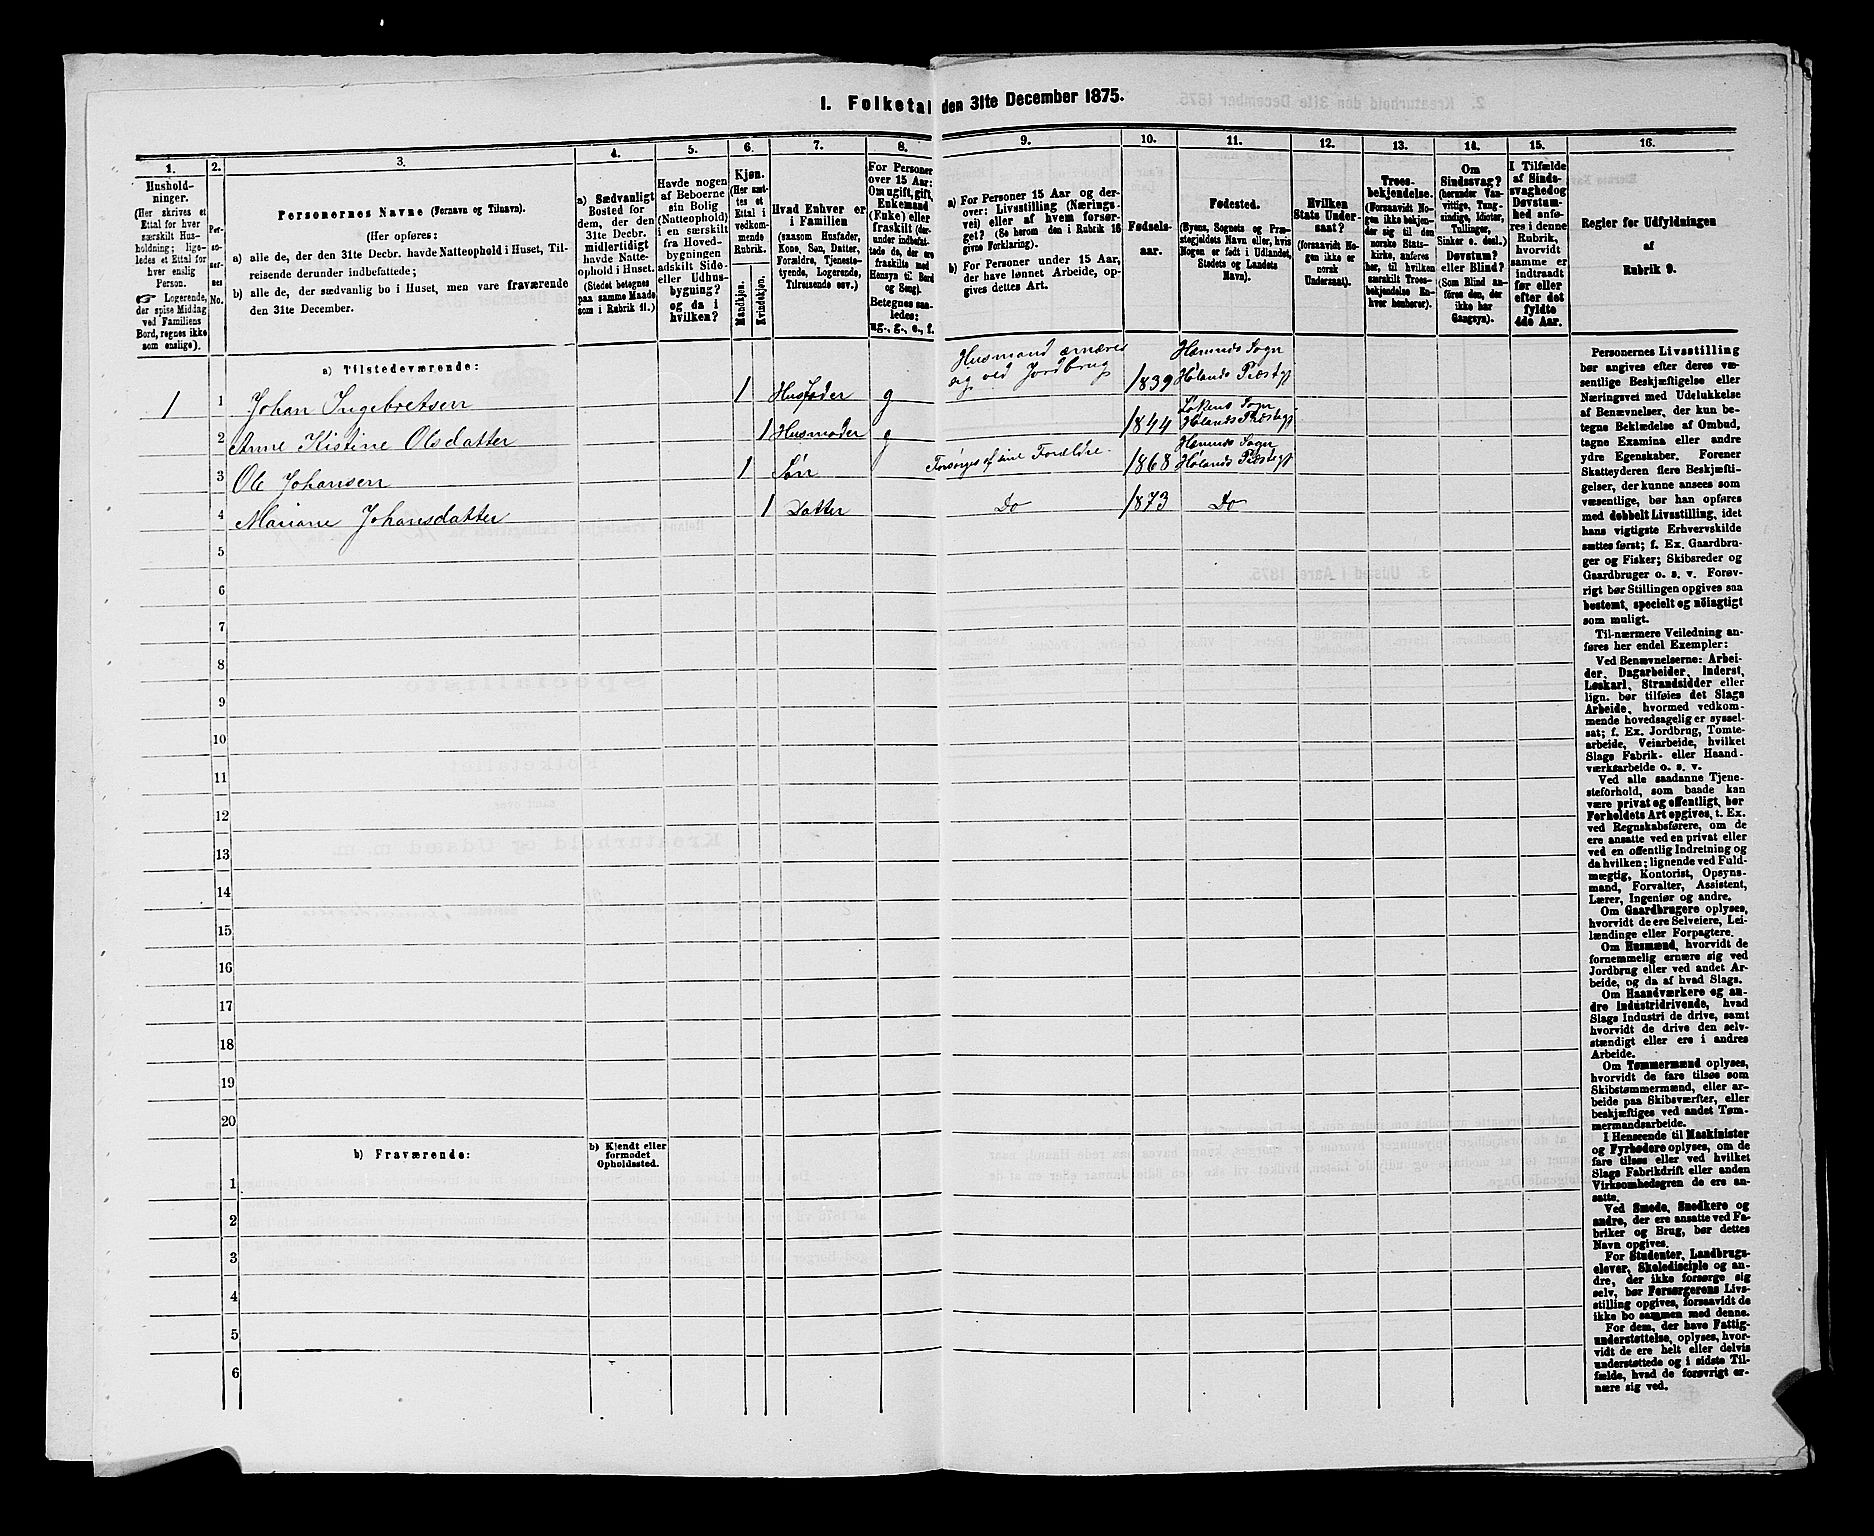 I. Folketal den 31te December 1875.
1. 2. 3. 4. 5. 6. 7. 8. 9. 10. 11. 12. 13. 14. 15. 16.
Hushold-
ninger.
(Her skrives et
Ettal for hver
særskilt Hus-
holdning; lige-
ledes et Ettal for
hver enslig
Person.
☞ Logerende,
der spise Middag
ved Familiens
Bord, regnes ikke
som enslige).
Per-
so-
ner-
nes
No.
Personernes Navne (Fornavn og Tilnavn).
(Her opføres:
a) alle de, der den 31te Decbr. havde Natteophold i Huset, Til-
reisende derunder indbefattede;
b) alle de, der sædvanlig bo i Huset, men vare fraværende
den 31te December.
a) Sædvanligt
Bosted for
dem, der den
31te Decbr.
midlertidigt
havde Natte-
ophold i Huset.
(Stedet betegnes
paa samme Maade
som i Rubrik 11.)
Havde nogen
af Beboerne
sin Bolig
(Natteophold)
i en særskilt
fra Hoved-
bygningen
adskilt Side-
eller Udhus-
bygning?
og da i
hvilken?
Kjøn.
(Her sæt-
tes et
Ettal i
vedkom-
mende
Rubrik.
Mandkjøn.
Kvindekjøn.
Hvad Enhver er
i Familien
(saasom Husfader,
Kone, Søn, Datter,
Forældre, Tjeneste-
tyende, Logerende,
Tilreisende osv.)
For Personer
over 15 Aar:
Om ugift, gift,
Enkemand
(Enke) eller
fraskilt (der-
under indbefat-
tede de, der ere
fraskilte med
Hensyn til Bord
og Seng).
Betegnes saa-
ledes:
ug., g., e., f.
a) For Personer 15 Aar og der-
over: Livsstilling (Nærings-
vei) eller af hvem forsør-
get? (Se herom den i Rubrik 16
givne Forklaring).
b) For Personer under 15 Aar,
der have lønnet Arbeide, op-
gives dettes Art.
Fødsels-
aar.
Fødested.
(Byens, Sognets og Præ-
stegjeldets Navn eller, hvis
Nogen er født i Udlandet,
Stedets og Landets
Navn).
Hvilken
Stats Under-
saat?
(forsaavidt No-
gen ikke er
norsk
Undersaat).
Troes-
bekjendelse.
(Forsaavidt No-
gen ikke bekjen-
der sig til den
norske Stats-
kirke, anføres
her, til hvilken
særskilt Troes-
bekjendelse En-
hver henhører).
Om
Sindssvag?
(herunder Van-
vittige, Tung-
sindige, Idioter,
Tullinger,
Sinker o. desl.)
Døvstum?
eller Blind?
(Som Blind an-
føres den, der
ikke har
Gangsyn).
I Tilfælde
af Sinds-
svaghed og
Døvstum-
hed anfø-
res i denne
Rubrik,
hvorvidt
samme er
indtraadt
før eller
efter det
fyldte
4de Aar.
Regler for Udfyldningen
af
Rubrik 9.
a) Tilstedeværende:
1 1 Johan Ingebretsen 1 Husfader g Husmand ernærer sig ved Jordbrug 1839 Hemnæs Sogn Hølands Præstgj
2 Anne Kistine Olsdatter 1 Husmoder g 1844 Løkens Sogn Hølands Præstegj
3 Ole Johansen 1 Søn Forsørges af sine Forældre 1868 Hemnæs Sogn Hølands Præstegj
4 Mariane Johansdatter 1 Datter Do 1873 Do
5
6
7
8
9
10
11
12
13
14
15
16
17
18
19
20
b) Fraværende:
b) Kjendt eller
formodet
Opholdssted.
1
2
3
4
5
6
Personernes Livsstilling
bør angives efter deres væ-
sentlige Beskjæftigelse eller
Næringsvei med Udelukkelse
af Benævnelser, der kun be-
tegne Beklædelse af Ombud,
tagne Examina eller andre
ydre Egenskaber. Forener
Skatteyderen flere Beskjæfti-
gelser, der kunne ansees som
væsentlige, bør han opføres
med dobbelt Livsstilling, idet
hans vigtigste Erhvervskilde
sættes først; f. Ex. Gaardbru-
ger og Fisker; Skibsreder og
Gaardbruger o. s. v. Forøv-
rigt bør Stillingen opgives saa
bestemt, specielt og nöiagtigt
som muligt.
Til nærmere Veiledning an-
føres her endel Exempler:
Ved Benævnelserne: Arbei-
der, Dagarbeider, Inderst,
Løskarl, Strandsidder eller
lign. bør tilføies det Slags
Arbeide, hvormed vedkom-
mende hovedsagelig er syssel-
sat; f. Ex. Jordbrug, Tomte-
arbeide, Veiarbeide, hvilket
Slags Fabrik- eller Haand-
værksarbeide o. s. v.
Ved alle saadanne Tjene-
steforhold, som baade kan
være privat og offentligt, bør
Forholdets Art opgives, t. Ex.
ved Regnskabsførere, om de
ere ansatte ved en privat eller
ved en offentlig Indretning og
da hvilken; lignende ved Fuld-
mægtig, Kontorist, Opsyns-
mand, Forvalter, Assistent,
Lærer, Ingeniør og andre.
Om Gaardbrugere oplyses,
hvorvidt de ere Selveiere, Lei-
lændinge eller Forpagtere.
Om Husmænd, hvorvidt de
fornemmelig ernære sig ved
Jordbrug eller ved andet Ar-
beide, og da af hvad Slags.
Om Haandværkere og an-
dre Industridrivende, hvad
Slags Industri de drive, samt
hvorvidt de drive den selv-
stændigt eller ere i andres
Arbeide.
Om Tømmermænd oplyses,
hvorvidt de fare tilsøs som
Skibstømmermænd, eller ar-
beide paa Skibsværfter, eller
beskjæftiges ved andet Tøm-
mermandsarbeide.
I Henseende til Maskinister
og Fyrbødere oplyses, om de
fare tilsøs eller ved hvilket
Slags Fabrikdrift eller anden
Virksomhedsgren de ere an-
satte.
Ved Smede, Snedkere og
andre, der ere ansatte ved Fa-
briker og Brug, bør dettes
Navn opgives.
For Studenter, Landbrugs-
elever, Skoledisciple og an-
dre, der ikke forsørge sig
selv, bør Forsørgerens Livs-
stilling opgives, forsaavidt de
ikke bo sammen med denne.
For dem, der have Fattig-
understøttelse, oplyses, hvor-
vidt de ere helt eller delvis
understøttede og i sidste Til-
fælde, hvad de forøvrigt er-
nære sig ved.